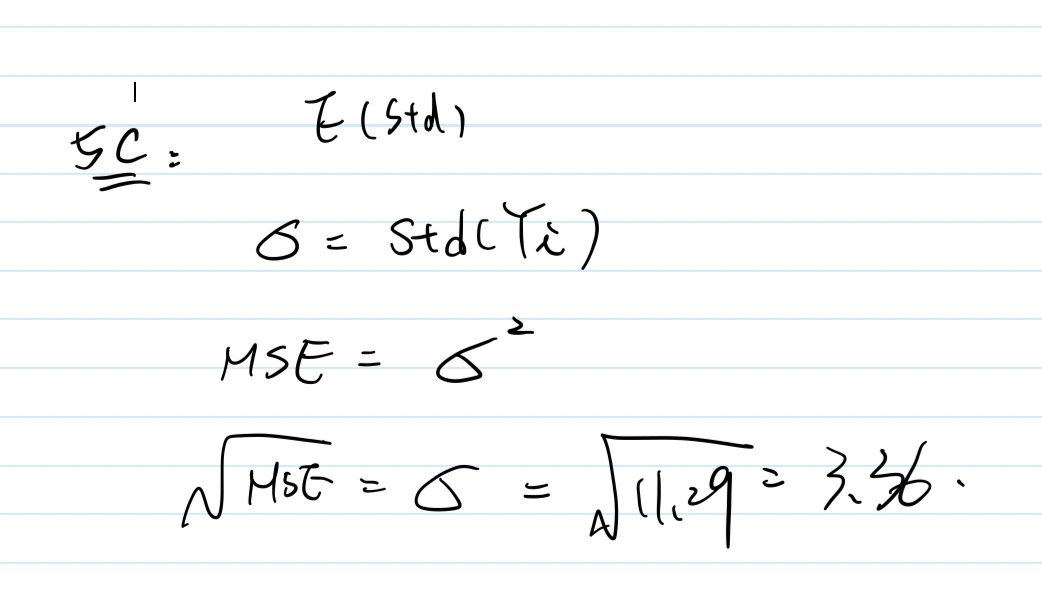 E(Std)
5C:
σ = Std(Yi)
MSE = σ²
√MSE = σ = √11.29 = 3.36.